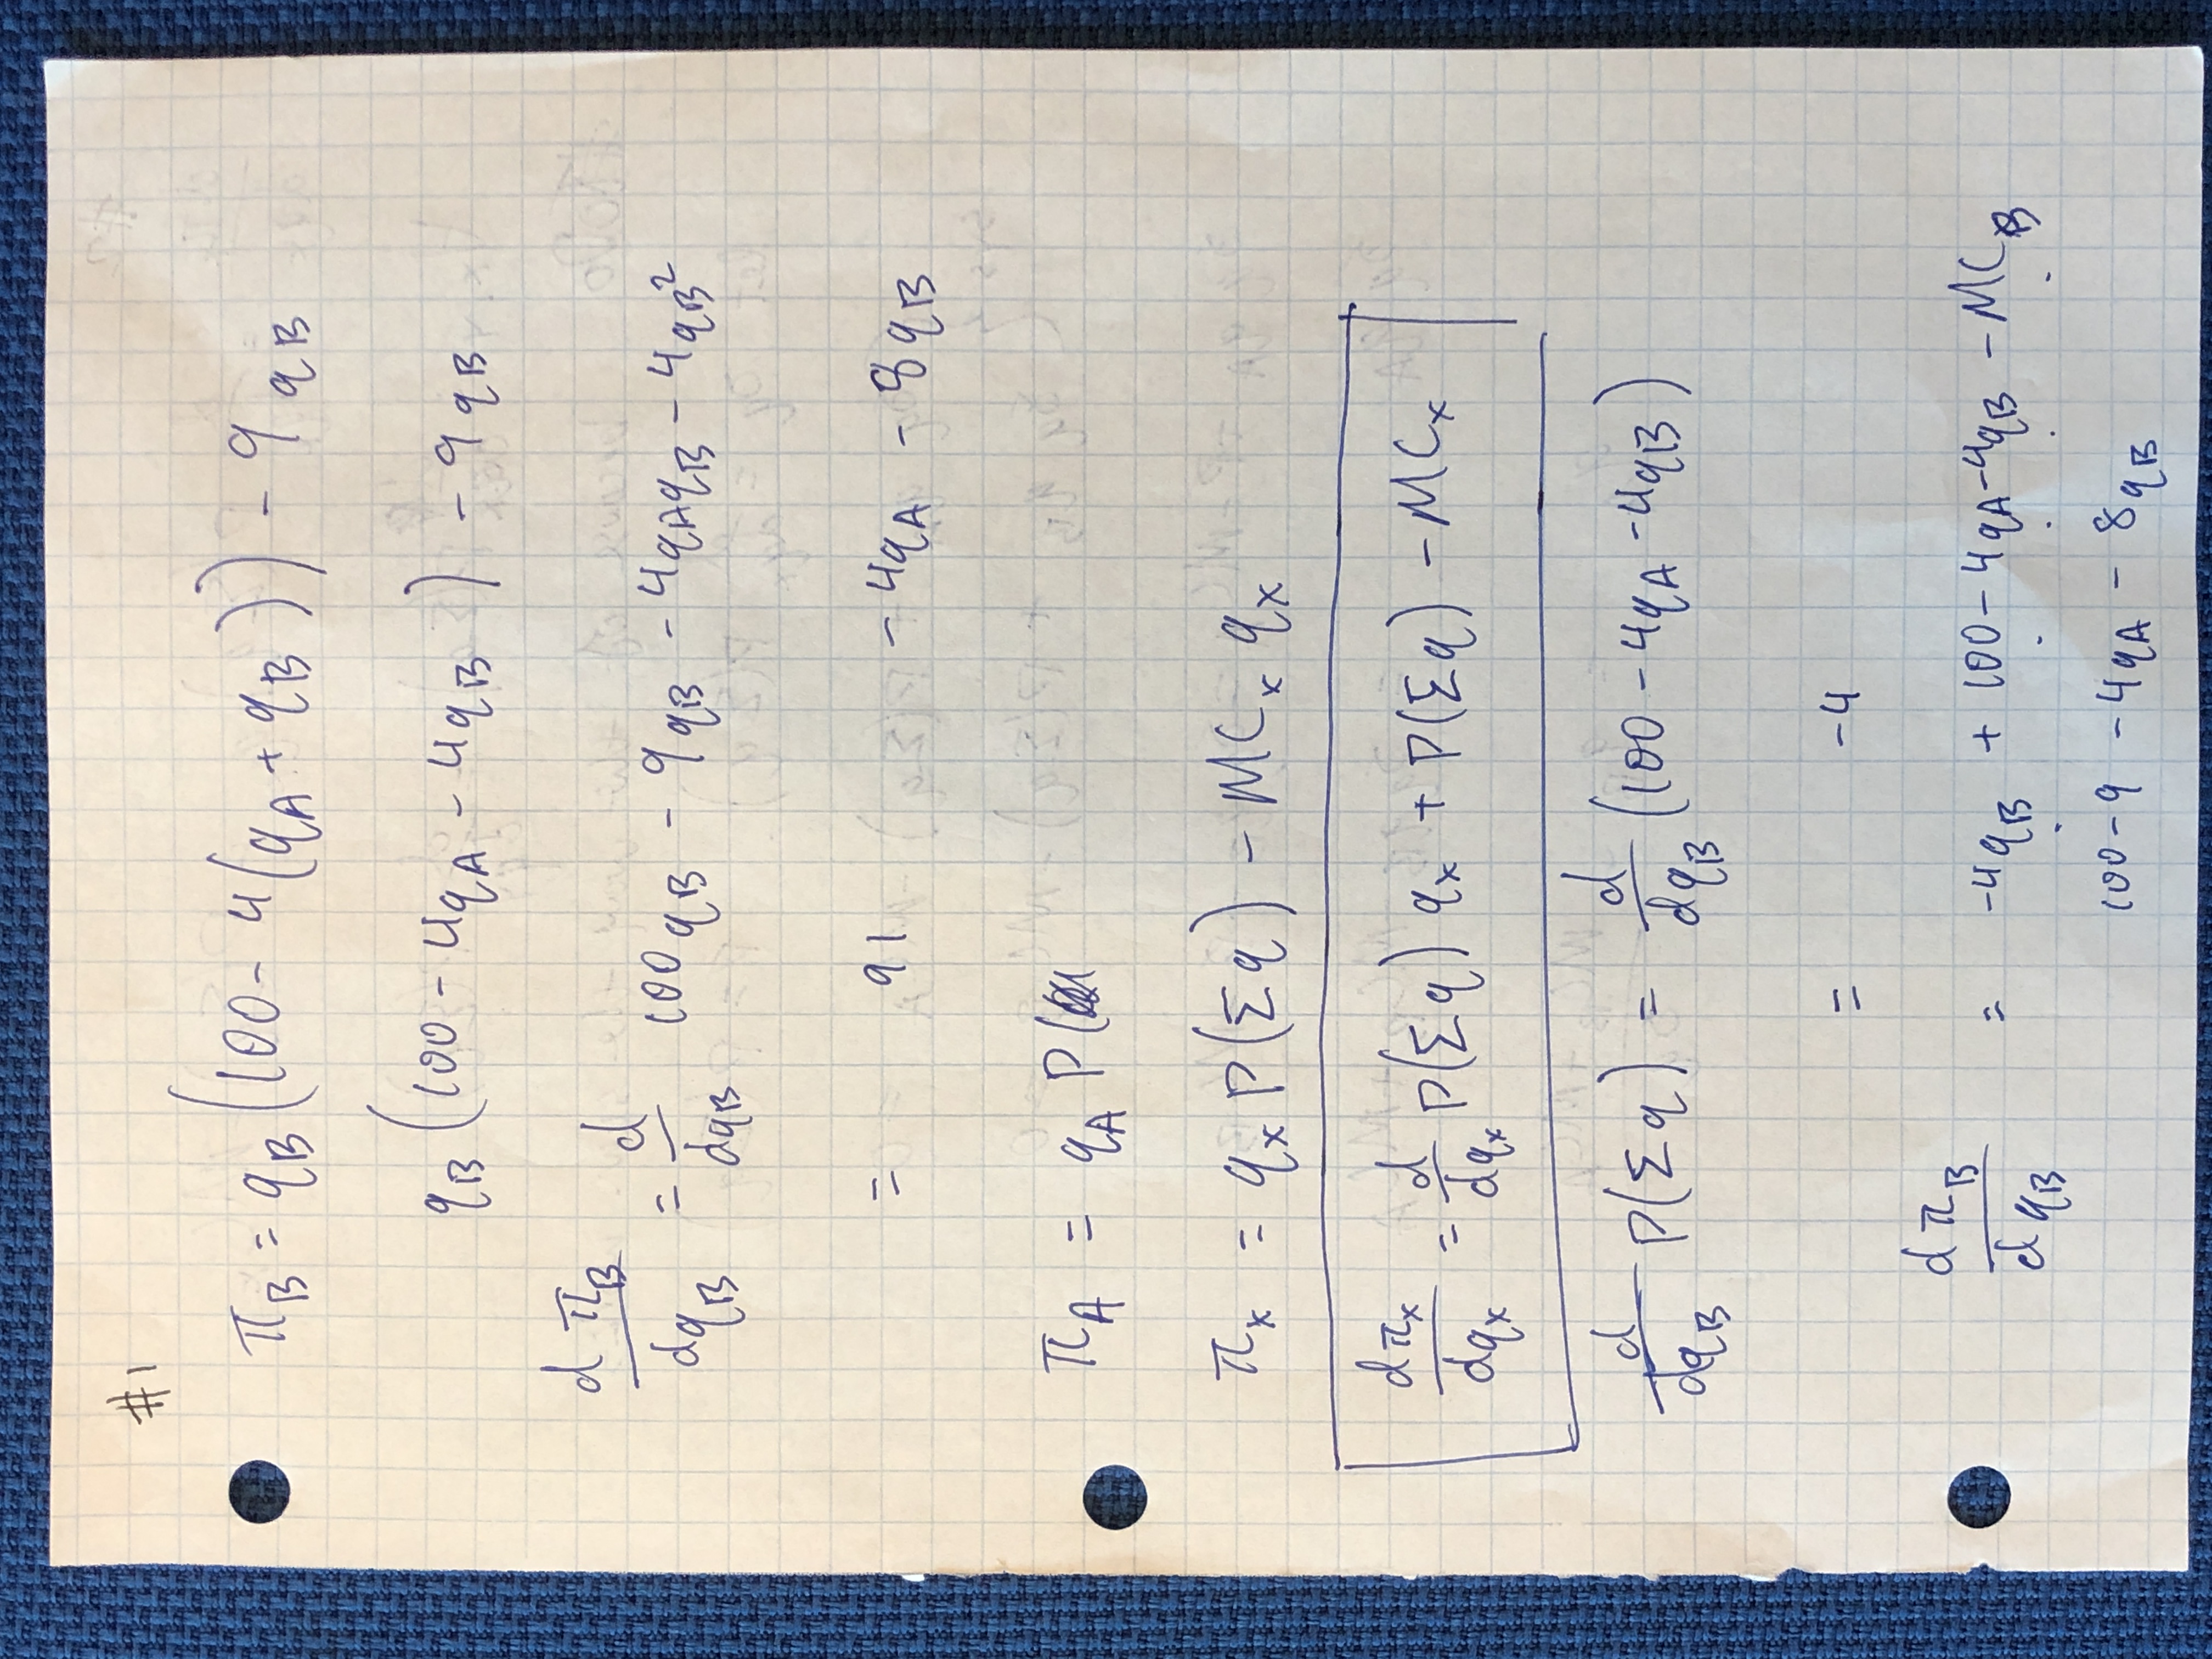 #1
π_B = q_B (100 - 4(q_A + q_B)) - 9 q_B
q_B (100 - 4q_A - 4q_B) - 9 q_B
dπ_B/dq_B = d/dq_B 100q_B - 9q_B - 4q_Aq_B - 4q_B²
= 91 - 4q_A - 8q_B
π_A = q_A P(
π_x = q_x P(Σq) - MC_x q_x
dπ_x/dq_x = d/dq_x P(Σq) q_x + P(Σq) - MC_x
d/dq_B P(Σq) = d/dq_B (100 - 4q_A - 4q_B)
= -4
dπ_B/dq_B = -4q_B + 100 - 4q_A - 4q_B - MC_B
100 - 9 - 4q_A - 8q_B